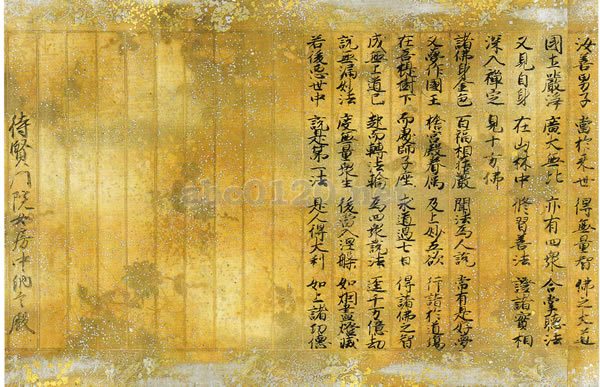 汝善男子 當於來世 得無量智 佛之大道
國土嚴淨 廣大無比 亦有四衆 合掌聽法
又見自身 在山林中 修習善法 證諸實相
深入禪定 見十方佛
諸佛身金色 百福相莊嚴 聞法為人說 常有是好夢
又夢作國王 捨宮殿眷属 及上妙五欲 行詣於道場
在菩提樹下 而處師子座 求道過七日 得諸佛之智
成無上道已 起而轉法輪 為四衆說法 逕千万億劫
說無漏妙法 度無量衆生 後當入涅槃 如烟盡燈滅
若後惡世中 說是第一法 是人得大利 如上諸功德
待賢門院女房中納言殿